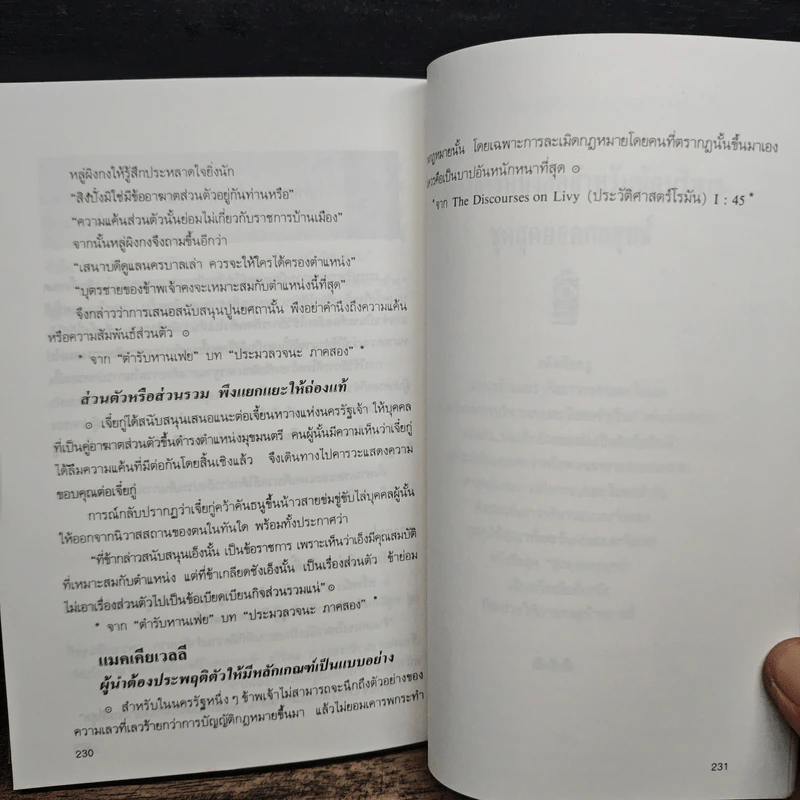 หลู่ผิงกงให้รู้สึกประหลาดใจยิ่งนัก
"สิงปั๋งมิใช่มีข้ออาฆาตส่วนตัวอยู่กับท่านหรือ"
"ความแค้นส่วนตัวนั้นย่อมไม่เกี่ยวกับราชการบ้านเมือง"
จากนั้นหลู่ผิงกงจึงถามขึ้นอีกว่า
"เสนาบดีดูแลนครบาลเล่า ควรจะให้ใครได้ครองตำแหน่ง"
"บุตรชายของข้าพเจ้าคงจะเหมาะสมกับตำแหน่งนี้ที่สุด"
จึงกล่าวว่าการเสนอสนับสนุนปูนยศถานั้น พึงอย่าคำนึงถึงความแค้น
หรือความสัมพันธ์ส่วนตัว ๏
* จาก "ตำรับหานเฟย" บท "ประมวลวจนะ ภาคสอง" *
ส่วนตัวหรือส่วนรวม พึงแยกแยะให้ถ่องแท้
๏ เจี่ยกู่ได้สนับสนุนเสนอแนะต่อเจี้ยนหวางแห่งนครรัฐเจ้า ให้บุคคล
ที่เป็นคู่อาฆาตส่วนตัวขึ้นดำรงตำแหน่งมุขมนตรี คนผู้นั้นมีความเห็นว่าเจี่ยกู่
ได้ลืมความแค้นที่มีต่อกันโดยสิ้นเชิงแล้ว จึงเดินทางไปคารวะแสดงความ
ขอบคุณต่อเจี่ยกู่
การณ์กลับปรากฏว่าเจี่ยกู่คว้าคันธนูขึ้นน้าวสายข่มขู่ขับไล่บุคคลผู้นั้น
ให้ออกจากนิวาสสถานของตนในทันใด พร้อมทั้งประกาศว่า
"ที่ข้ากล่าวสนับสนุนเอ็งนั้น เป็นข้อราชการ เพราะเห็นว่าเอ็งมีคุณสมบัติ
ที่เหมาะสมกับตำแหน่ง แต่ที่ข้าเกลียดชังเอ็งนั้น เป็นเรื่องส่วนตัว ข้าย่อม
ไม่เอาเรื่องส่วนตัวไปเป็นข้อเบียดเบียนกิจส่วนรวมแน่" ๏
* จาก "ตำรับหานเฟย" บท "ประมวลวจนะ ภาคสอง" *
แมคเคียเวลลี
ผู้นำต้องประพฤติตัวให้มีหลักเกณฑ์เป็นแบบอย่าง
๏ สำหรับในนครรัฐหนึ่ง ๆ ข้าพเจ้าไม่สามารถจะนึกถึงตัวอย่างของ
ความเลวที่เลวร้ายกว่าการบัญญัติกฎหมายขึ้นมา แล้วไม่ยอมเคารพกระทำ
230
กฎหมายนั้น โดยเฉพาะการละเมิดกฎหมายโดยคนที่ตรากฎนั้นขึ้นมาเอง
คือเป็นบาปอันหนักหนาที่สุด ๏
*จาก The Discourses on Livy (ประวัติศาสตร์โรมัน) I : 45 *
231